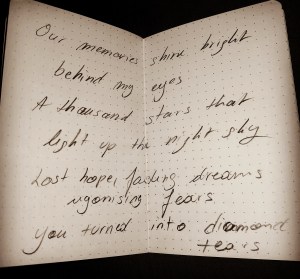 Our memories shine bright
behind my eyes
A thousand stars that
light up the night sky
Lost hope, fading dreams
agonising fears
you turned into diamond
tears